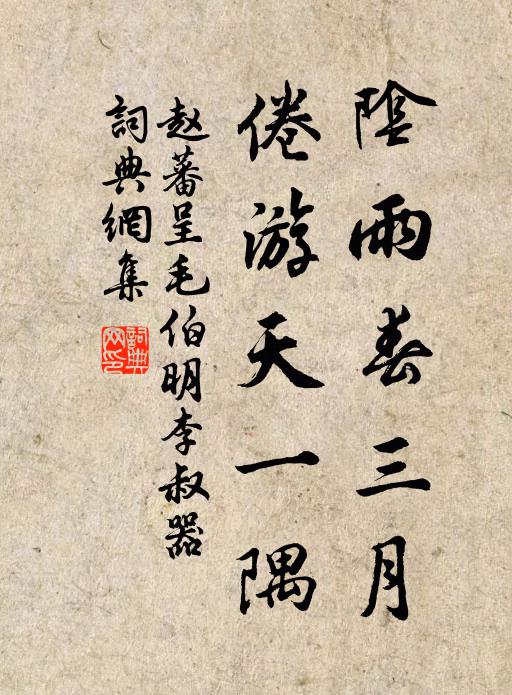 陰雨春三月
倦游天一隅
赵蕃呈毛伯明李叔器
詞典網集
詞典网印